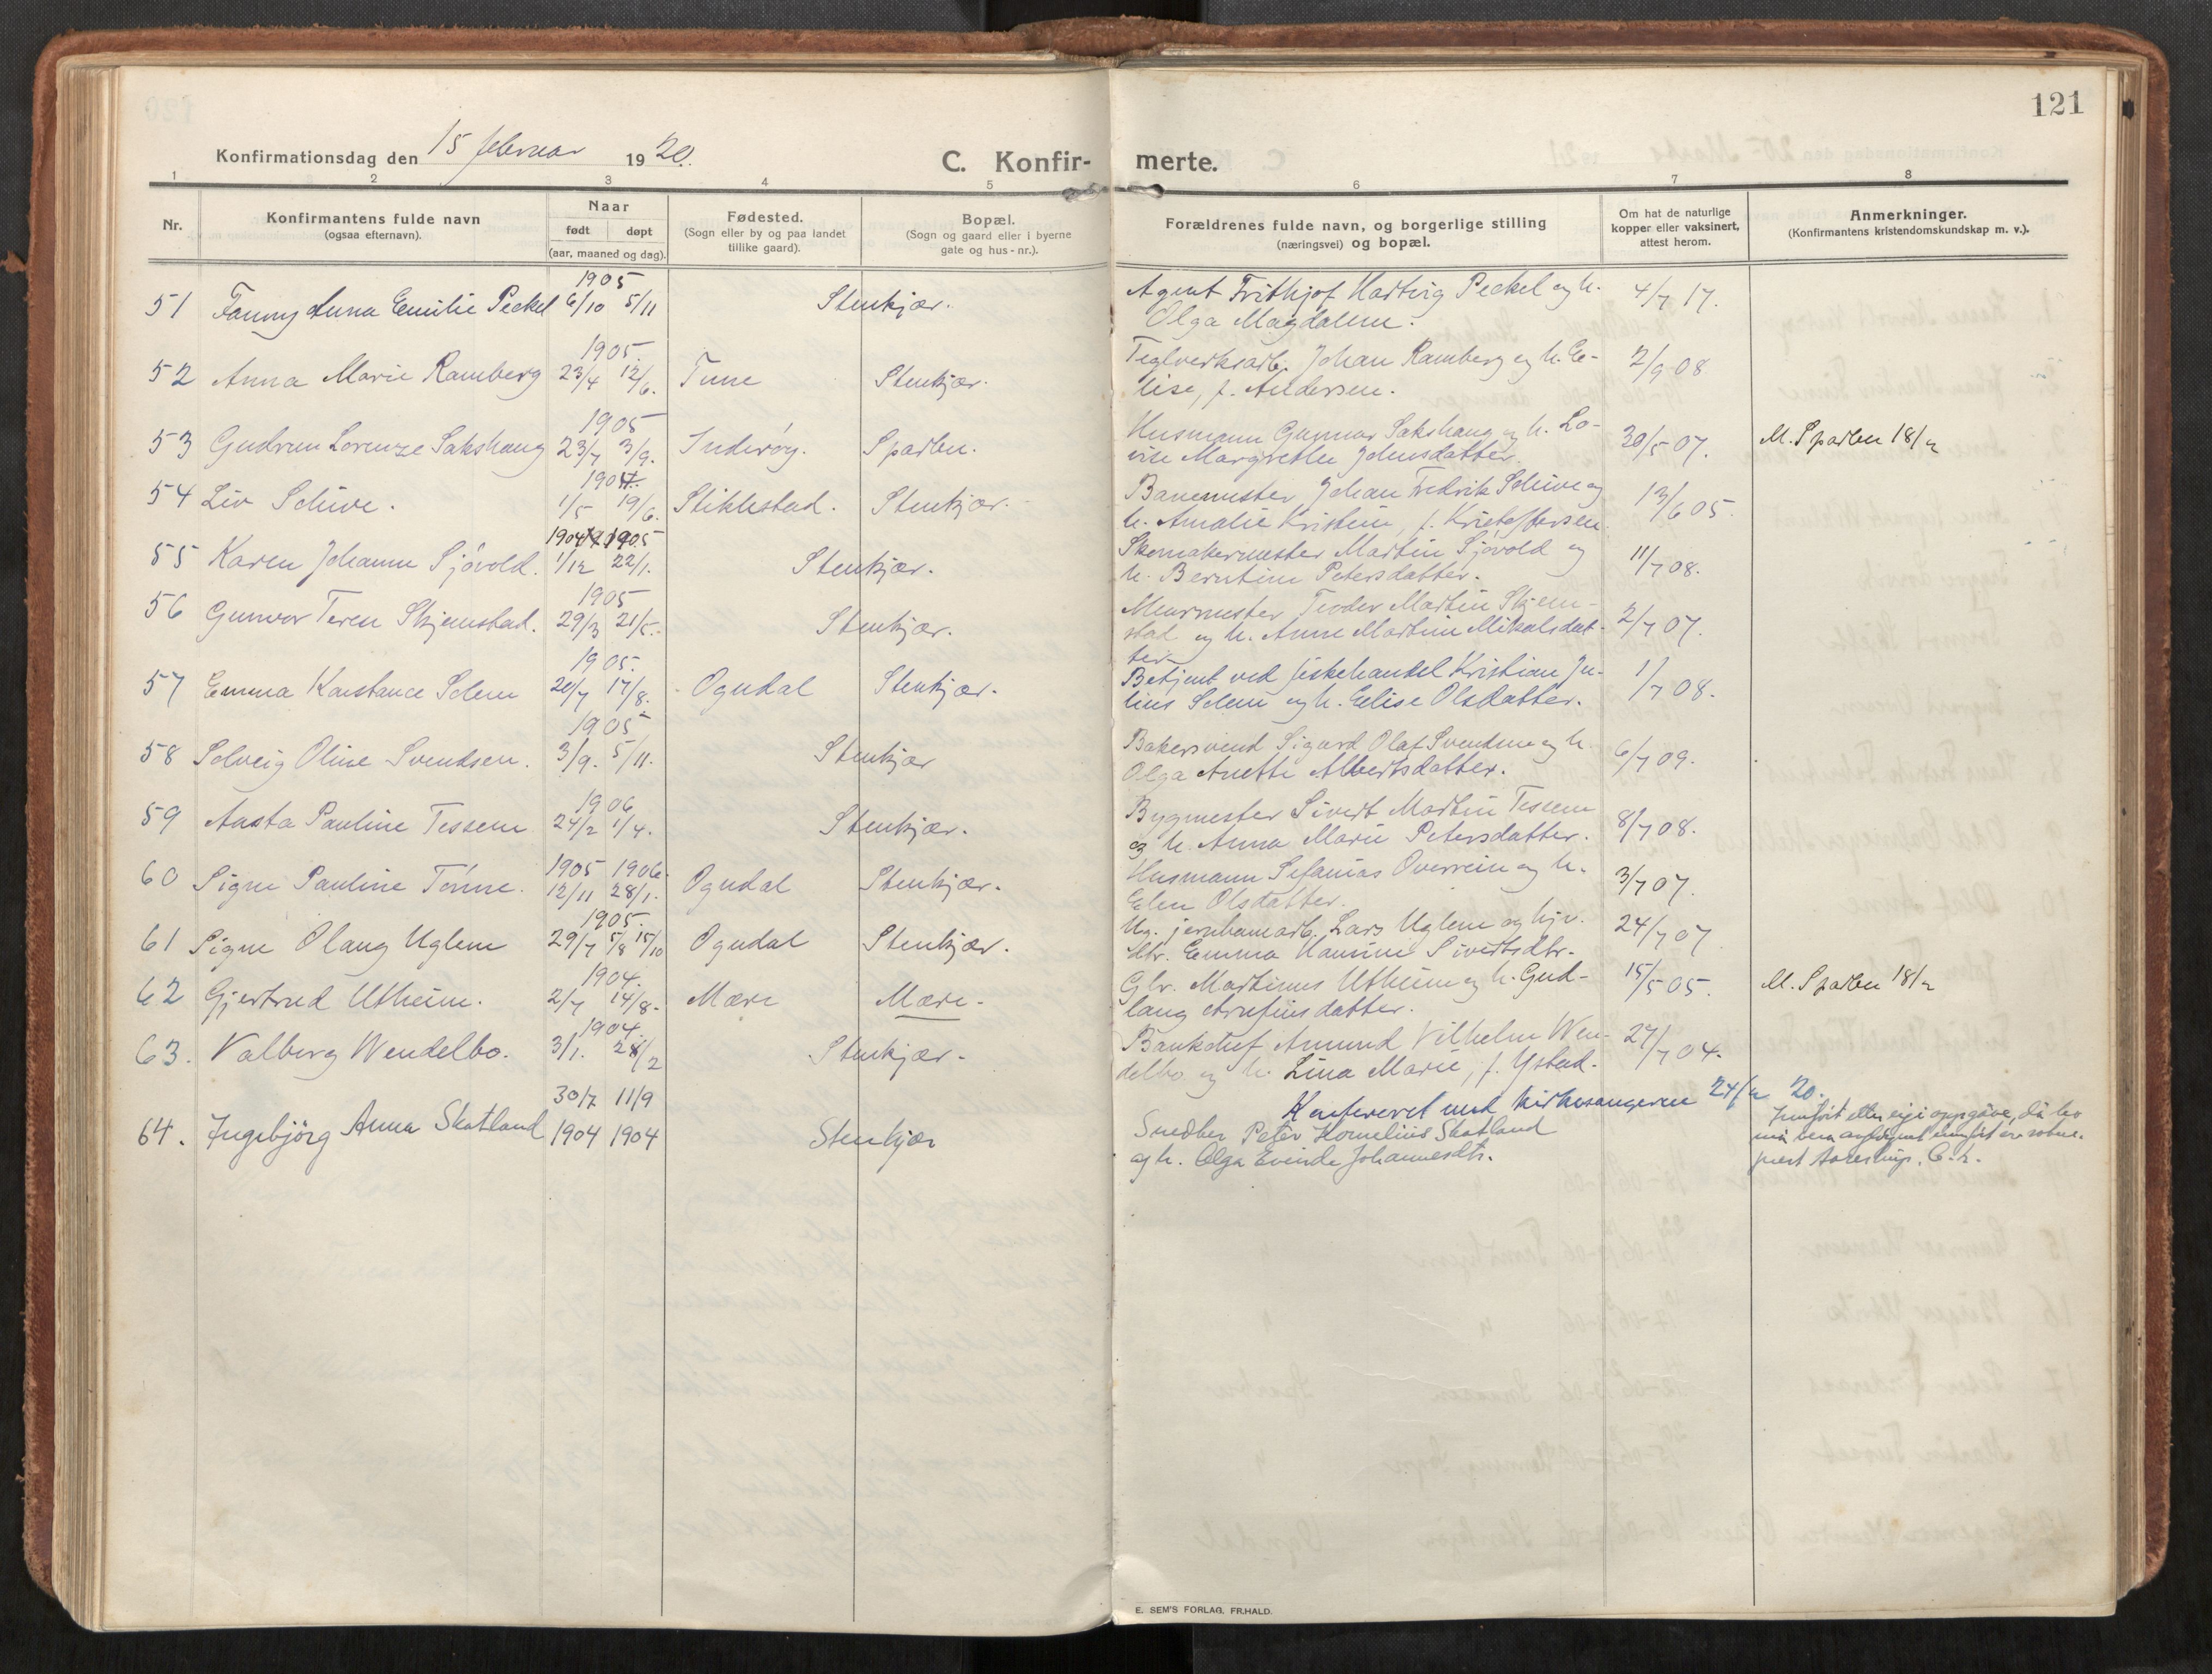 121
Konfirmationsdag den 15 februar 1920.
C. Konfir- merte.
1 2 3 4 5 6 7 8
Nr.
Konfirmantens fulde navn
(ogsaa efternavn).
Naar
født døpt
(aar, maaned og dag).
Fødested.
(Sogn eller by og paa landet
tillike gaard).
Bopæl.
(Sogn og gaard eller i byerne
gate og hus-nr.).
Forældrenes fulde navn, og borgerlige stilling
(næringsvei) og bopæl.
Om hat de naturlige
kopper eller vaksinert,
attest herom.
Anmerkninger.
(Konfirmantens kristendomskundskap m. v.).
1905
51 Fanny Anna Emilie Peckel 6/10 5/11 Stenkjær. Agent Frithjof Hartvig Peckel og h. 4/7 17.
Olga Magdalene.
1905.
52 Anna Marie Ramberg 23/4 12/6. Tune Stenkjær. Teglverksarb. Johan Ramberg og h. E- 2/9 08
lise, f. Andersen.
1905
53 Gudrun Lorenze Sakshaug 23/7 3/9. Inderøy. Sparbu. Husmann Gunnar Sakshaug og h. Lo- 30/5 07. M. Sparbu 18/2
vise Margrethe Johnsdatter.
1904.
54 Liv Schive. 1/5 19/6. Stiklestad. Stenkjær. Banemester Johan Fredrik Schive og 13/6 05.
h. Amalie Kristine, f. Kristoffersen.
1904 1905
55 Karen Johanne Sjøvold. 1/12 22/1. Stenkjær. Skomakermester Martin Sjøvold og 11/7 08.
h. Berntine Petersdatter.
1905
56 Gunvor Terese Skjemstad. 29/3 21/5. Stenkjær. Murmester Teodor Martin Skjem- 2/7 07.
stad og h. Anne Martine Mikalsdat-
ter
1905.
57 Emma Konstance Solem 20/7 17/8. Ogndal Stenkjær. Betjent ved fiskehandel Kristian Ju- 1/7 08.
lius Solem og h. Elise Olsdatter.
1905
58 Solveig Oline Svendsen. 3/9. 5/11. Stenkjær Bakersvend Sigurd Olaf Svendsen og h. 6/7 09.
Olga Anette Albertsdatter.
1906
59 Aasta Pauline Tessem 24/2 1/4. Stenkjær. Bygmester Sivert Martin Tessem 8/7 08.
og h. Anna Marie Petersdatter.
1905 1906
60 Signe Pauline Tønne. 12/11 28/1. Ogndal Stenkjær. Husmann Sefanias Overrein og h. 3/7 07.
Elen Olsdatter.
1905.
61 Signe Olaug Uglem 29/7 5/8 15/10 Ogndal Stenkjær. Ug. jernbanearb. Lars Uglem og hjv. 24/7 07
dtr. Emma Hansine Sivertsdtr.
1904.
62 Gjertrud Utheim. 2/7 14/8. Mære Mære. Gbr. Martinus Utheim og h. Gud- 15/5 05. M. Sparbu 18/2
laug Arnfinsdatter.
1904.
63. Valborg Wendelbo. 3/1. 28/2 Stenkjær. Bankchef Amund Vilhelm Wen- 27/7 04.
delbo og h. Lina Marie, f. Ystad.
Konfereret med kirkesangeren 24/2 20.
30/7 11/9
64. Ingebjörg Anna Skatland 1904 1904 Stenkjær Snedker Peter Kornelius Skatland
og h. Olga Evinde Johannesdtr.
E. SEM'S FORLAG, FR.HALD.